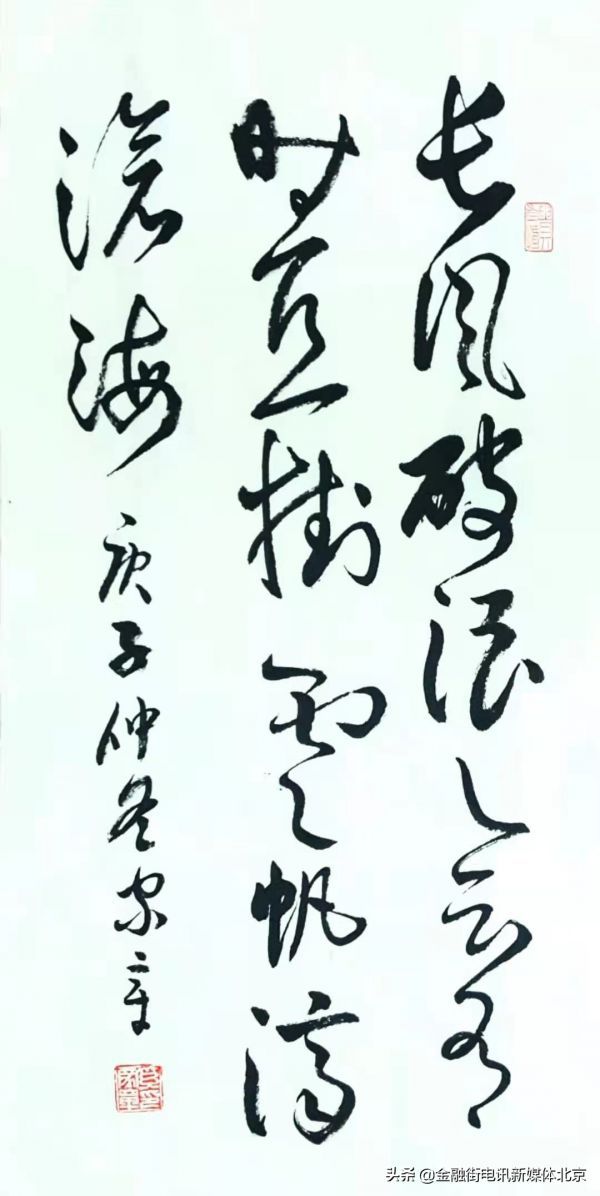 长风破浪会有
时直掛云帆济
沧海
庚子仲冬家章
头条 @金融街电讯新媒体北京